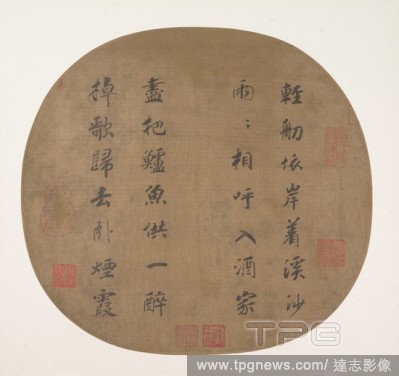 輕舠依岸着溪沙
兩〻相呼入酒家
盡把鱸魚供一醉
棹歌歸去卧煙霞
TPG
www.tpgnews.com / 達志影像